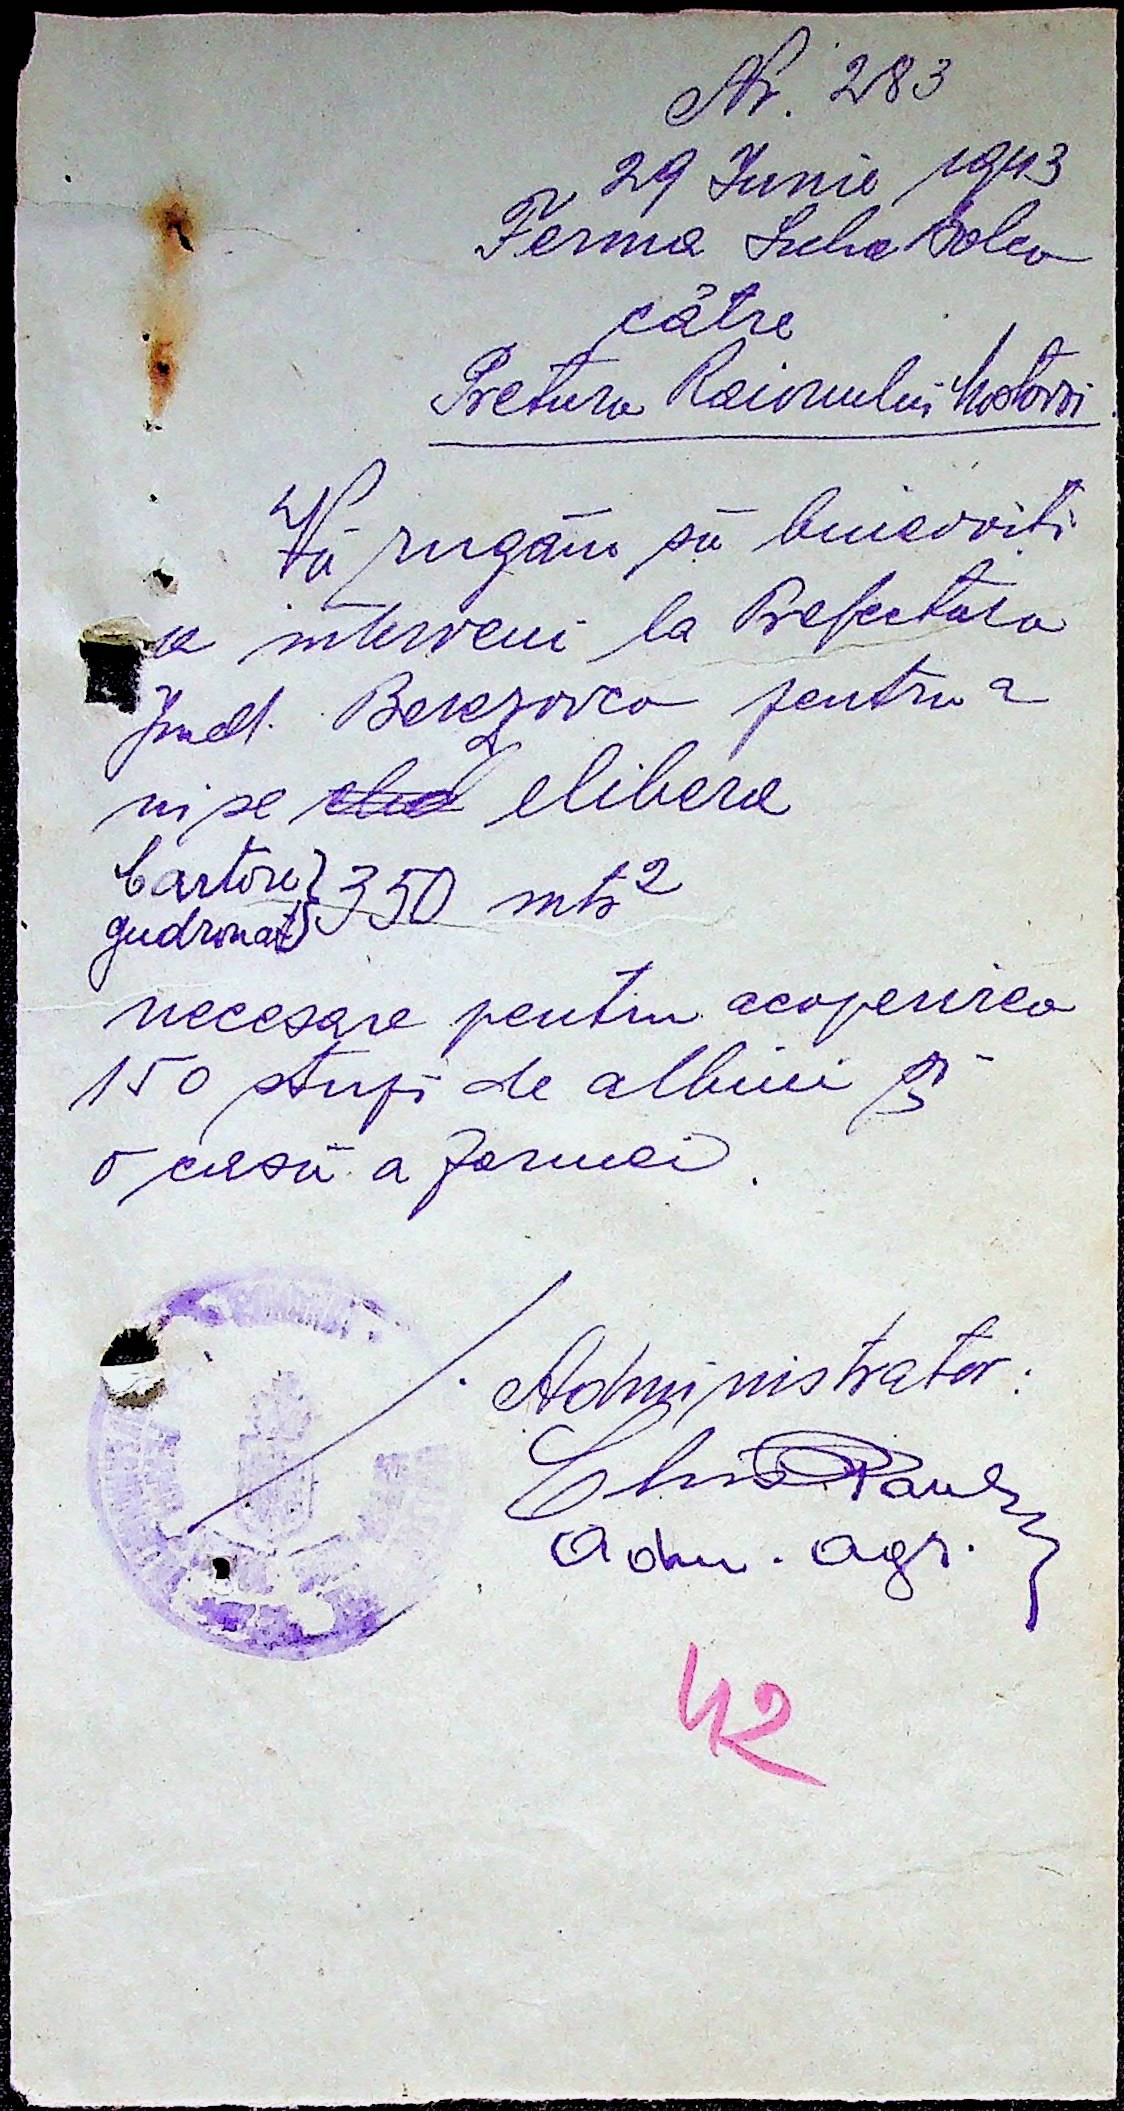 Nr. 283
29 Iunie 1943
Ferma Suha Balca
către
Pretura Raionului Mostovoi
Vă rugăm să binevoiți
a interveni la Prefectura
Jud. Berezovca pentru a
ni se elibera
Carton } 350 mts2
gudronat
necesare pentru acoperirea
150 stupi de albini și
o casă a fermei.
Administrator:
Adm. agr.
42